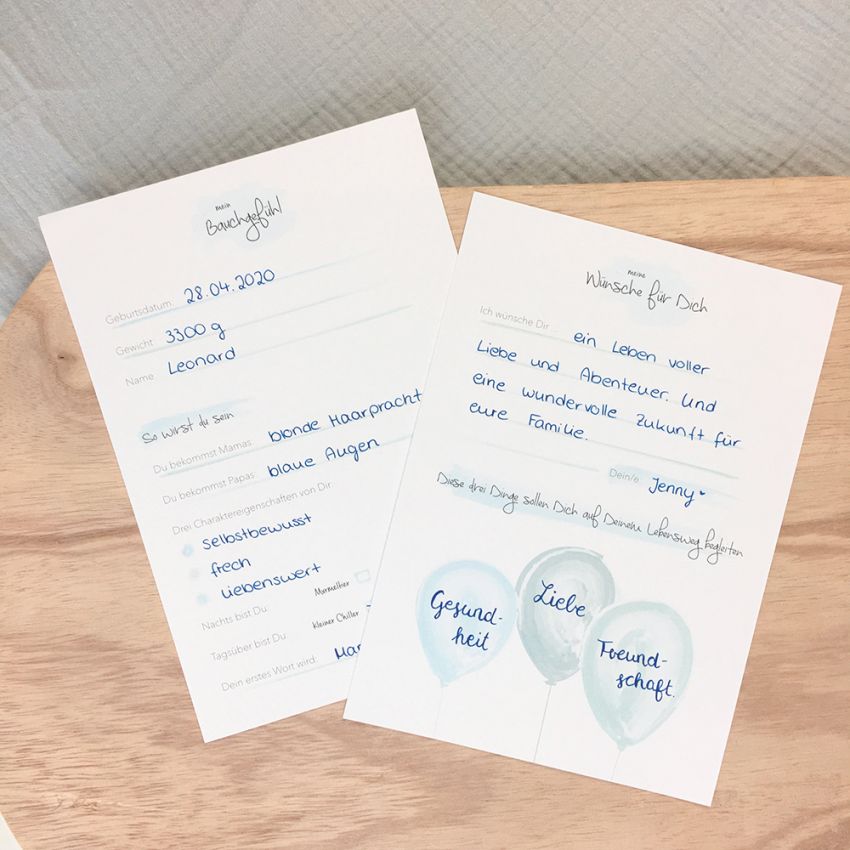 mein
Bauchgefühl
Geburtsdatum: 28.04.2020
Gewicht: 3300 g
Name: Leonard
So wirst du sein
Du bekommst Mamas: blonde Haarpracht
Du bekommst Papas: blaue Augen
Drei Charaktereigenschaften von Dir:
selbstbewusst
frech
liebenswert
Nachts bist Du Murmeltier
Tagsüber bist Du kleiner Chiller
Dein erstes Wort wird:
meine
Wünsche für Dich
Ich wünsche Dir ein Leben voller
Liebe und Abenteuer. Und
eine wundervolle Zukunft für
eure Familie.
Dein/e Jenny
Diese drei Dinge sollen Dich auf Deinem Lebensweg begleiten
Gesund-
heit
Liebe
Freund-
schaft.